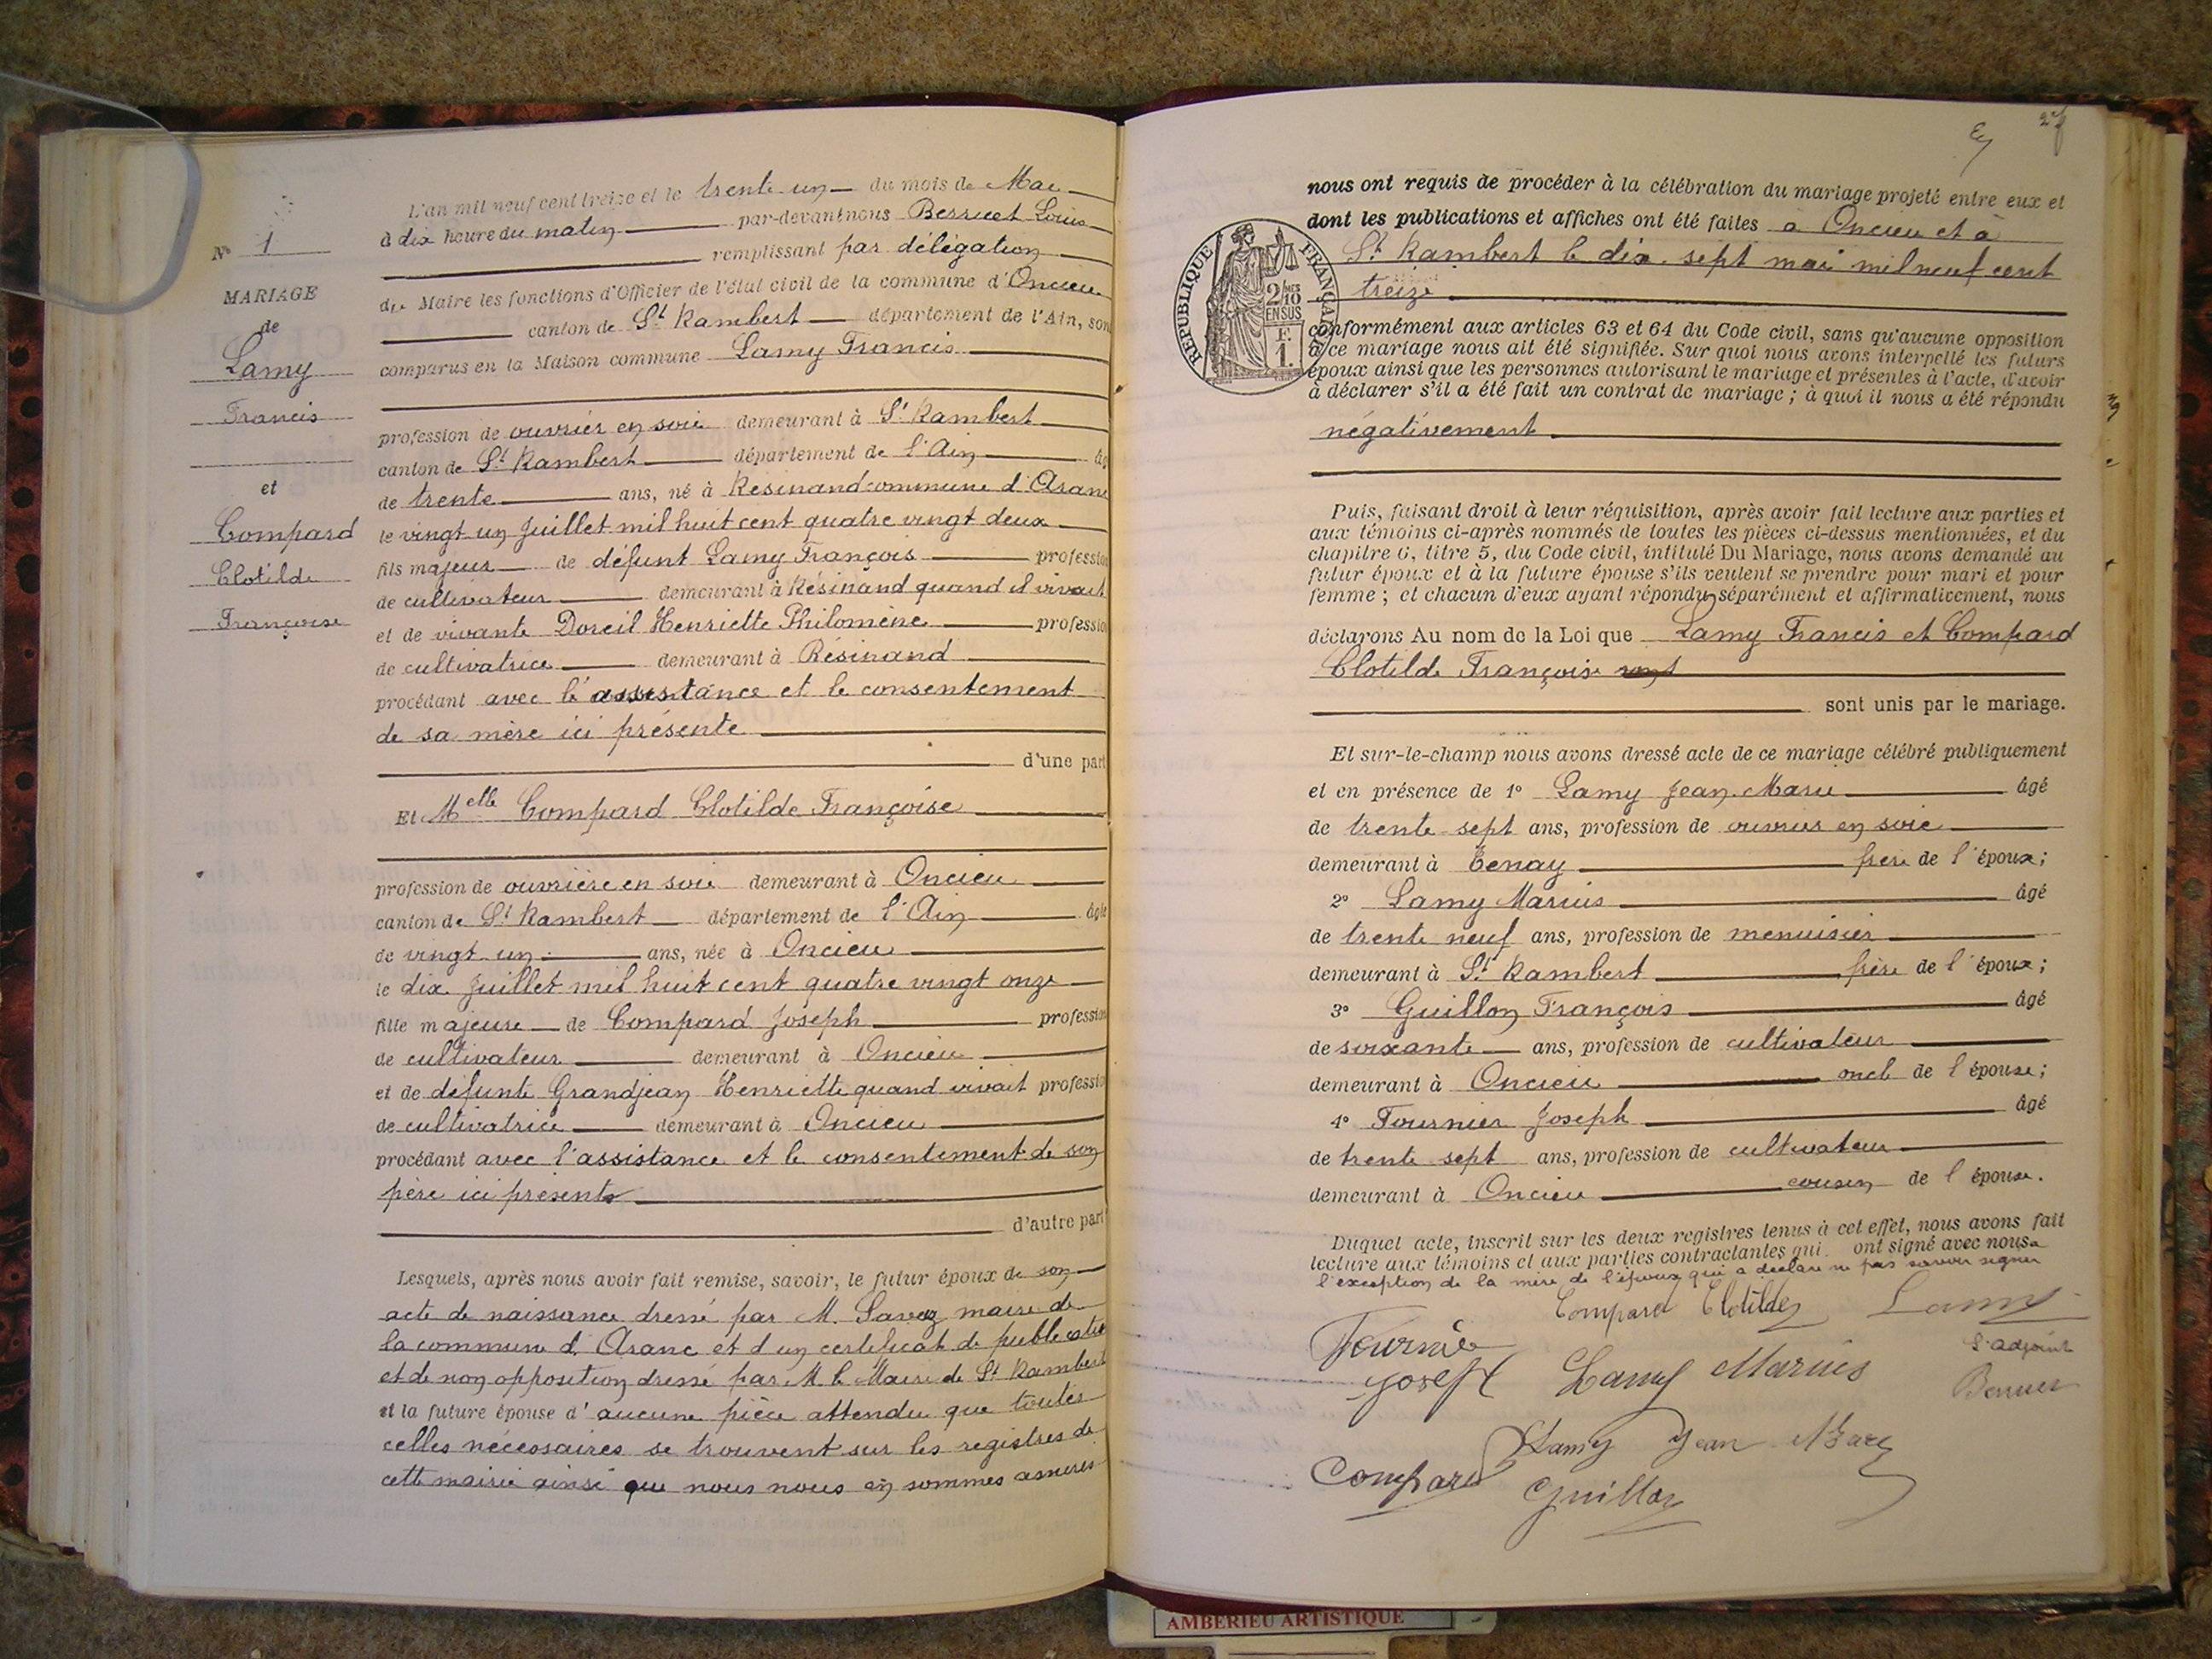 N° 1
MARIAGE
de
Lamy
Francis
et
Compard
Clotilde
Françoise
L'an mil neuf cent treize et le trente un du mois de Mai
à dix heure du matin par-devant nous Berruet Louis
remplissant par délégation
du Maire les fonctions d'Officier de l'état civil de la commune d'Oncieu
canton de St Rambert département de l'Ain, son
comparus en la Maison commune Lamy Francis
profession de ouvrier en soie demeurant à St Rambert
canton de St Rambert département de l'Ain âg
de trente ans, né à Résinand commune d'Aranc
le vingt un Juillet mil huit cent quatre vingt deux
fils majeur de défunt Lamy François profession
de cultivateur demeurant à Résinand quand il vivait
et de vivante Doreil Henriette Philomène profession
de cultivatrice demeurant à Résinand
procédant avec l'assistance et le consentement
de sa mère ici présente
d'une part
Et Melle Compard Clotilde Françoise
profession de ouvrière en soie demeurant à Oncieu
canton de St Rambert département de l'Ain âgée
de vingt un ans, née à Oncieu
le dix Juillet mil huit cent quatre vingt onze
fille majeure de Compard Joseph profession
de cultivateur demeurant à Oncieu
et de défunte Grandjean Henriette quand vivait profession
de cultivatrice demeurant à Oncieu
procédant avec l'assistance et le consentement de son
père ici présent
d'autre part
Lesquels, après nous avoir fait remise, savoir, le futur époux de son
acte de naissance dressé par M. maire de
la commune d'Aranc et d'un certificat de publication
et de non opposition dressé par M. le Maire de St Rambert
et la future épouse d'aucune pièce attendu que toutes
celles nécessaires se trouvent sur les registres de
cette mairie ainsi que nous nous en sommes assurés
2f
nous ont requis de procéder à la célébration du mariage projeté entre eux et
dont les publications et affiches ont été faites à Oncieu et à
St Rambert le dix-sept mai mil neuf cent
treize
REPUBLIQUE FRANÇAISE
2/10MES
EN SUS
F.
1.
conformément aux articles 63 et 64 du Code civil, sans qu'aucune opposition
à ce mariage nous ait été signifiée. Sur quoi nous avons interpellé les futurs
époux ainsi que les personnes autorisant le mariage et présentes à l'acte, d'avoir
à déclarer s'il a été fait un contrat de mariage ; à quoi il nous a été répondu
négativement
Puis, faisant droit à leur réquisition, après avoir fait lecture aux parties et
aux témoins ci-après nommés de toutes les pièces ci-dessus mentionnées, et du
chapitre 6, titre 5, du Code civil, intitulé Du Mariage, nous avons demandé au
futur époux et à la future épouse s'ils veulent se prendre pour mari et pour
femme ; et chacun d'eux ayant répondu séparément et affirmativement, nous
déclarons Au nom de la Loi que Lamy Francis et Compard
Clotilde Françoise sont
sont unis par le mariage.
Et sur-le-champ nous avons dressé acte de ce mariage célébré publiquement
et en présence de 1° Lamy Jean Marie âgé
de trente sept ans, profession de ouvrier en soie
demeurant à Tenay frère de l'époux;
2° Lamy Marius âgé
de trente neuf ans, profession de menuisier
demeurant à St Rambert frère de l'époux;
3° Guillon François âgé
de soixante ans, profession de cultivateur
demeurant à Oncieu oncle de l'épouse;
4° Fournier Joseph âgé
de trente sept ans, profession de cultivateur
demeurant à Oncieu cousin de l'épouse.
Duquel acte, inscrit sur les deux registres tenus à cet effet, nous avons fait
lecture aux témoins et aux parties contractantes qui ont signé avec nous à
l'exception de la mère de l'époux qui a déclaré ne pas savoir signer
Compard Clotilde Lamy
Fournie
Joseph Lamy Marius
L'adjoint
Berruet
Lamy Jean Marie
Compard Guillon
AMBERIEU ARTISTIQUE